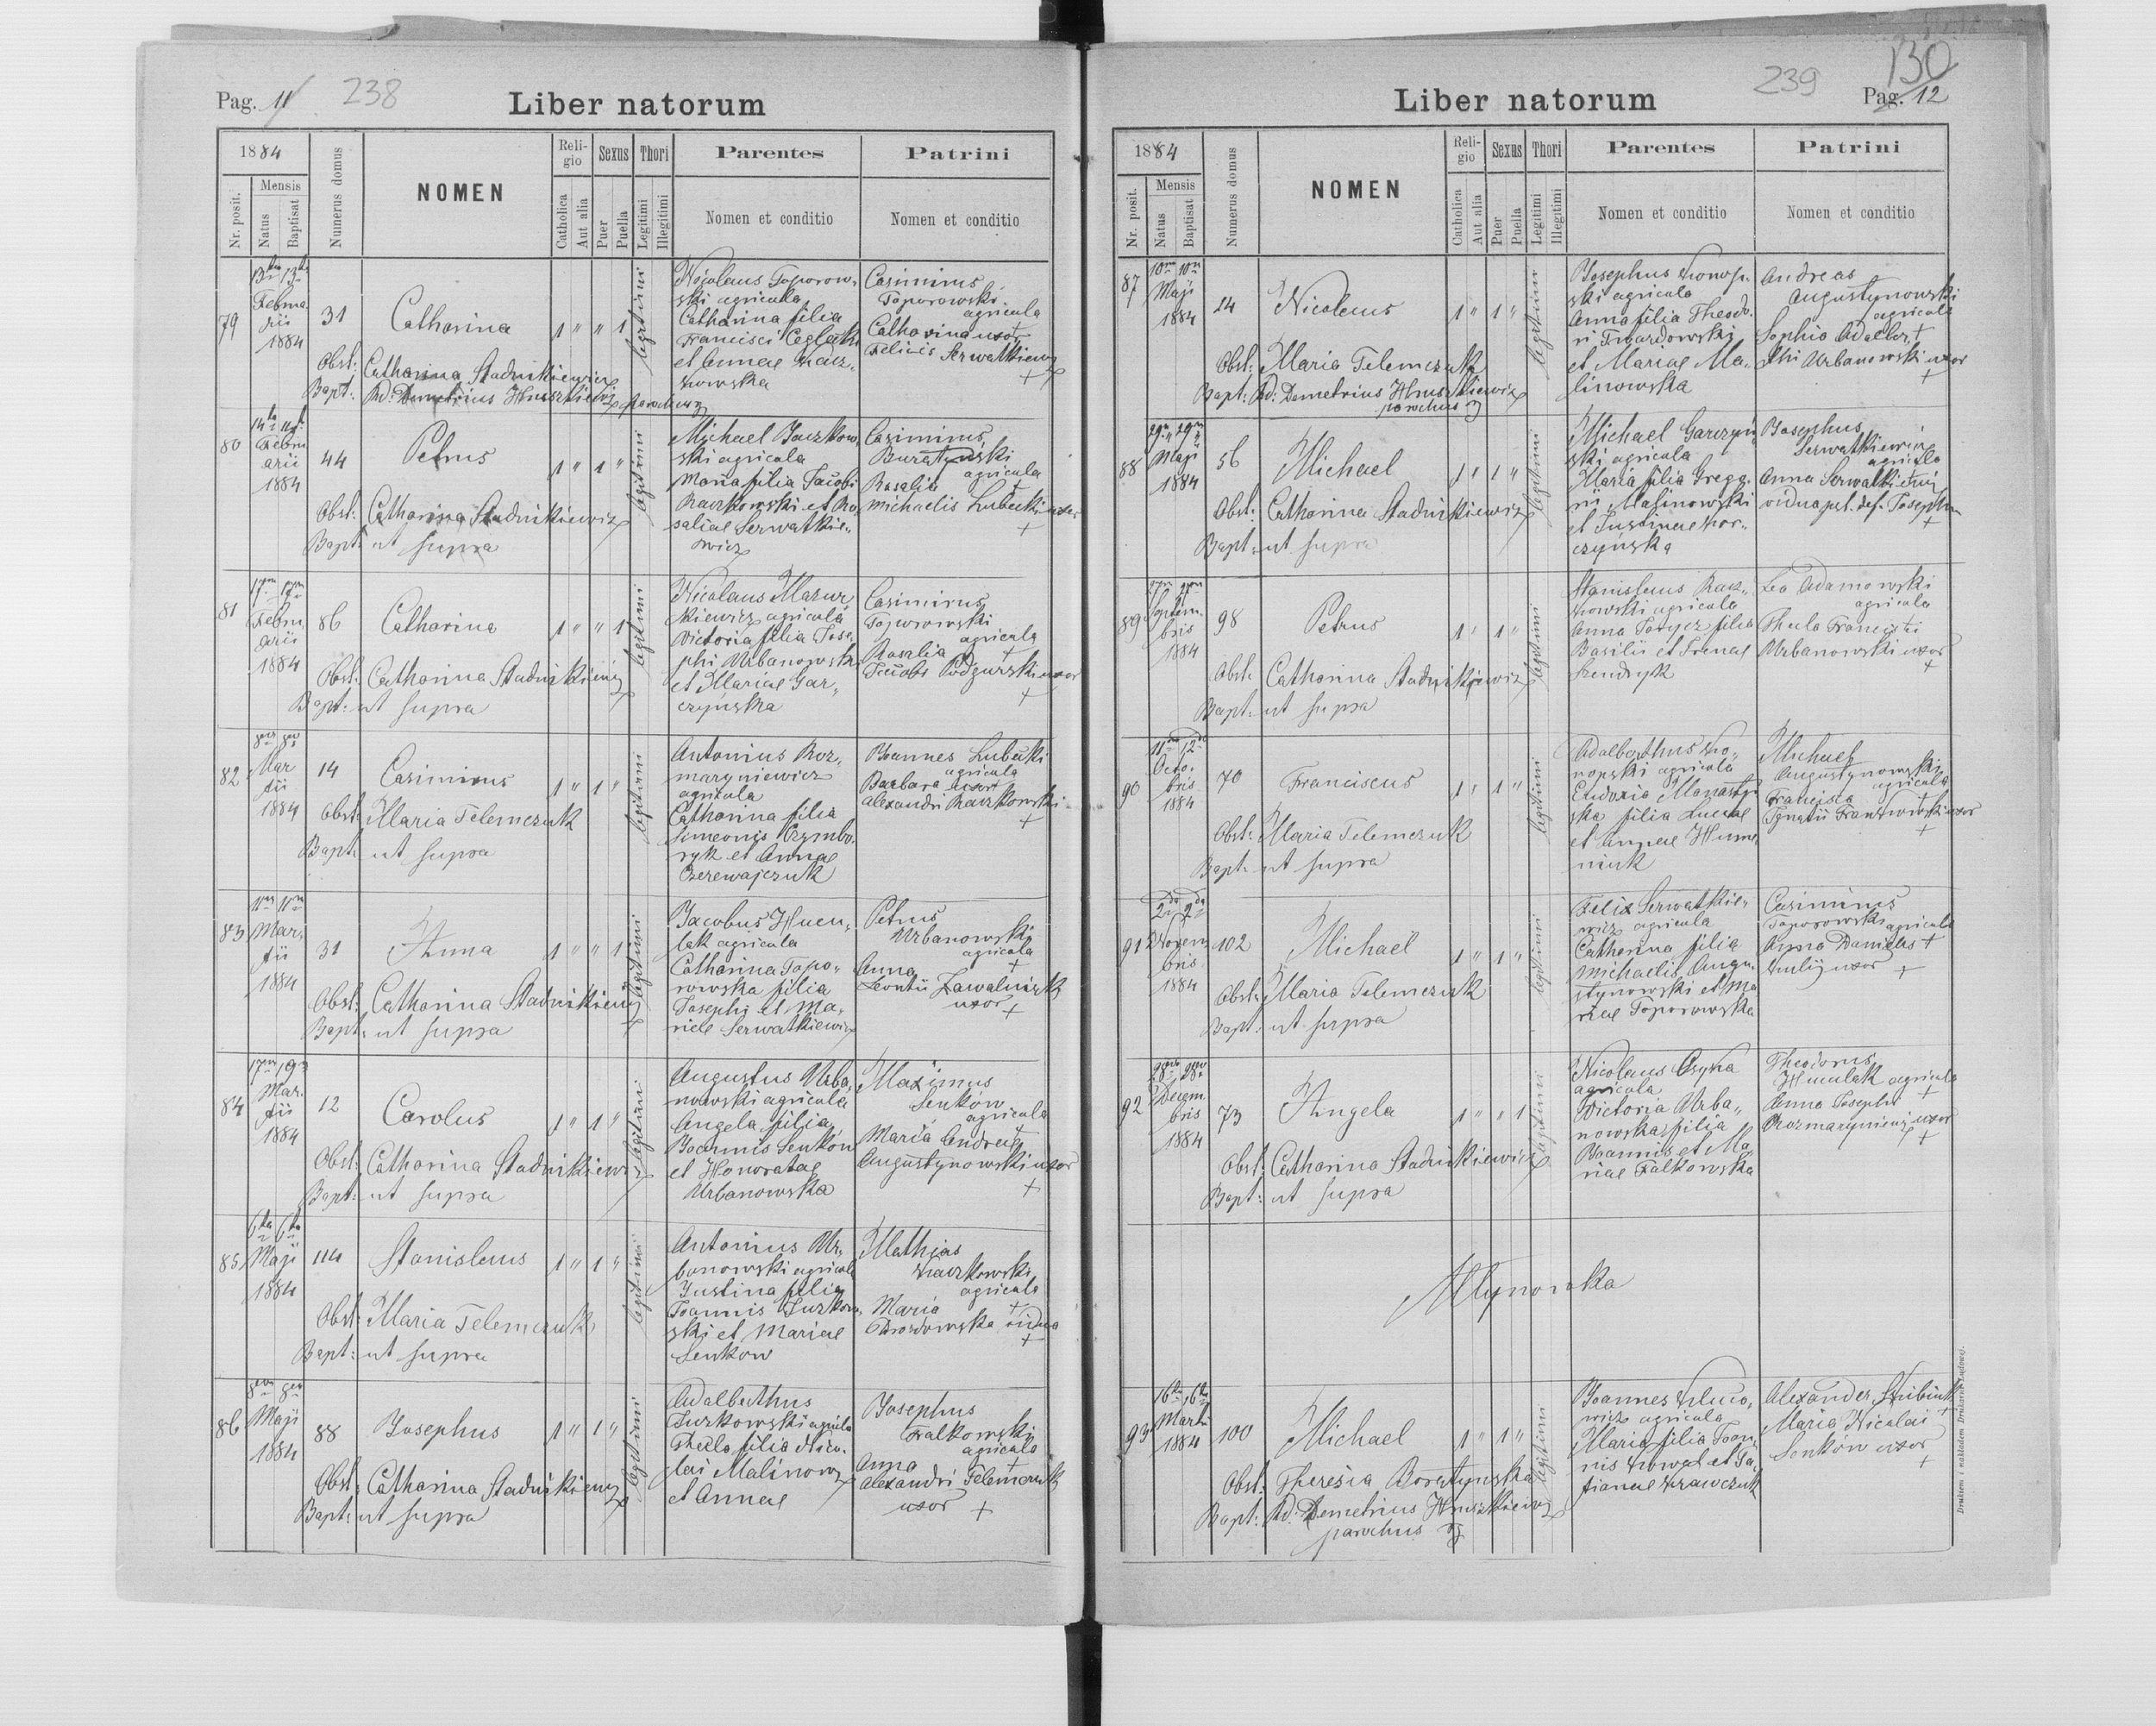 Pag. 11 238
Liber natorum
1884
Nr. posit.
Mensis
Natus
Baptisat
Numerus domus
NOMEN
Religio
Catholica
Aut alia
Sexus
Puer
Puella
Thori
Legitimi
Illegitimi
Parentes
Nomen et conditio
Patrini
Nomen et conditio
79
Februarii
1884
31
Catharina
1 " " 1
legitimi
Nicolaus Toporow-
ski agricola
Catharina filia
Francisci
et Annae
Casimirus
Toporowski
agricola +
Catharina uxor
Felicis Serwatkiewicz
+
Obst: Catharina Stadnikiewicz
Bapt: Rd. Demetrius Hruszkiewicz parochus
80
Februarii
1884
44
Petrus
1 " 1 "
legitimi
Michael Raczkow-
ski agricola
Maria filia Jacobi
Raczkowski et Ro-
saliae Serwatkie-
wicz
Casimirus
Buratynski
agricola +
Rosalia
Michaelis Lubecki uxor
+
Obst: Catharina Stadnikiewicz
Bapt: ut supra
81
17 17
Februarii
1884
86
Catharina
1 " " 1
legitimi
Nicolaus Mazur-
kiewicz agricola
Victoria filia Jose-
phi Urbanowski
et Mariae Gar-
czynska
Casimirus
Toporowski
agricola +
Rosalia
Jacobi Podgurski uxor
+
Obst: Catharina Stadnikiewicz
Bapt: ut supra
82
Martii
1884
14
Casimirus
1 " 1 "
legitimi
Antonius Roz-
maryniewicz
agricola
Catharina filia
Simeonis Czymbo-
ryk et Annae
Czerewajczuk
Joannes Lubecki
agricola
Barbara uxor
Alexandri Raczkowski
+
Obst: Maria Telemczuk
Bapt: ut supra
83
Martii
1884
31
Anna
1 " " 1
legitimi
Jacobus Hucu-
lak agricola
Catharina Topo-
rowska filia
Josephi et Ma-
riae Serwatkiewicz
Petrus
Urbanowski
agricola
+
Anna
Leontii Zawalniczk
uxor +
Obst: Catharina Stadnikiewicz
Bapt: ut supra
84
17 19
Martii
1884
12
Carolus
1 " 1 "
legitimi
Augustus Urba-
nowski agricola
Angela filia
Joannis Senków
et Honoratae
Urbanowska
Maximus
Senków
agricola
+
Maria Andreae
Augustynowski uxor
+
Obst: Catharina Stadnikiewicz
Bapt: ut supra
85
6 6
Maji
1884
114
Stanislaus
1 " 1 "
legitimi
Antonius Ur-
banowski agricola
Justina filia
Joannis Turkow-
ski et Mariae
Senkow
Mathias
Raczkowski
agricola
+
Maria
Drozdowska vidua
+
Obst: Maria Telemczuk
Bapt: ut supra
86
Maji
1884
88
Josephus
1 " 1 "
legitimi
Adalberthus
Turkowski agricola
Thecla filia Nico-
lai Malinow
et Annae
Josephus
Falkowski
agricola
+
Anna
Alexandri Telemczuk
uxor +
Obst: Catharina Stadnikiewicz
Bapt: ut supra
239 130
Pag. 12
Liber natorum
1884
Nr. posit.
Mensis
Natus
Baptisat
Numerus domus
NOMEN
Religio
Catholica
Aut alia
Sexus
Puer
Puella
Thori
Legitimi
Illegitimi
Parentes
Nomen et conditio
Patrini
Nomen et conditio
87
10 10
Maji
1884
24
Nicolaus
1 " 1 "
legitimi
Josephus Konop-
ski agricola
Anna filia Theodo-
ri Twardowski
et Mariae Ma-
linowska
Andreas
Augustynowski
agricola
+
Sophia Adalber-
thi Urbanowski uxor
+
Obst: Maria Telemczuk
Bapt: Rd. Demetrius Hruszkiewicz
parochus
88
29 29
Maji
1884
56
Michael
1 " 1 "
legitimi
Michael Garczyń-
ski agricola
Maria filia Grego-
rii Malinowski
et Justinae Kor-
czyńska
Josephus
Serwatkiewicz
agricola
Anna Serwatkiewicz
vidua p. def. Josephum
+
Obst: Catharina Stadnikiewicz
Bapt: ut supra
89
Septem-
bris
1884
98
Petrus
1 " 1 "
legitimi
Stanislaus Racz-
kowski agricola
Anna filia
Basilii et Irenae
Szendryk
Leo Adamowski
agricola
Thecla Francisci
Urbanowski uxor
+
Obst: Catharina Stadnikiewicz
Bapt: ut supra
90
11 12
Octo-
bris
1884
70
Franciscus
1 " 1 "
legitimi
Adalberthus Ko-
nopski agricola
Eudoxia Monasty-
ska filia Lucae
et Annae Hume-
niuk
Michael
Augustynowski
agricola
+
Francisca
Ignatii Frankowski uxor
+
Obst: Maria Telemczuk
Bapt: ut supra
91
2 2
Novem-
bris
1884
102
Michael
1 " 1 "
legitimi
Felix Serwatkie-
wicz agricola
Catharina filia
Michaelis Augu-
stynowski et Ma-
riae Toporowska
Casimirus
Toporowski agricola
+
Anna Danielis
Kulij uxor +
Obst: Maria Telemczuk
Bapt: ut supra
92
28 28
Decem-
bris
1884
73
Angela
1 " " 1
legitimi
Nicolaus Czyka
agricola
Victoria Urba-
nowska filia
Joannis et Ma-
riae Falkowska
Theodorus
Huculak agricola
+
Anna Josephi
Rozmaryniewicz uxor
+
Obst: Catharina Stadnikiewicz
Bapt: ut supra
Młynowka
93
16 16
Martii
1884
100
Michael
1 " 1 "
legitimi
Joannes
agricola
Maria filia Joan-
nis Kowal et Ta-
tianae Krawczuk
Alexander
+
Maria Nicolai
Senków uxor
+
Obst: Theresia Boratynska
Bapt: Rd. Demetrius Hruszkiewicz
parochus